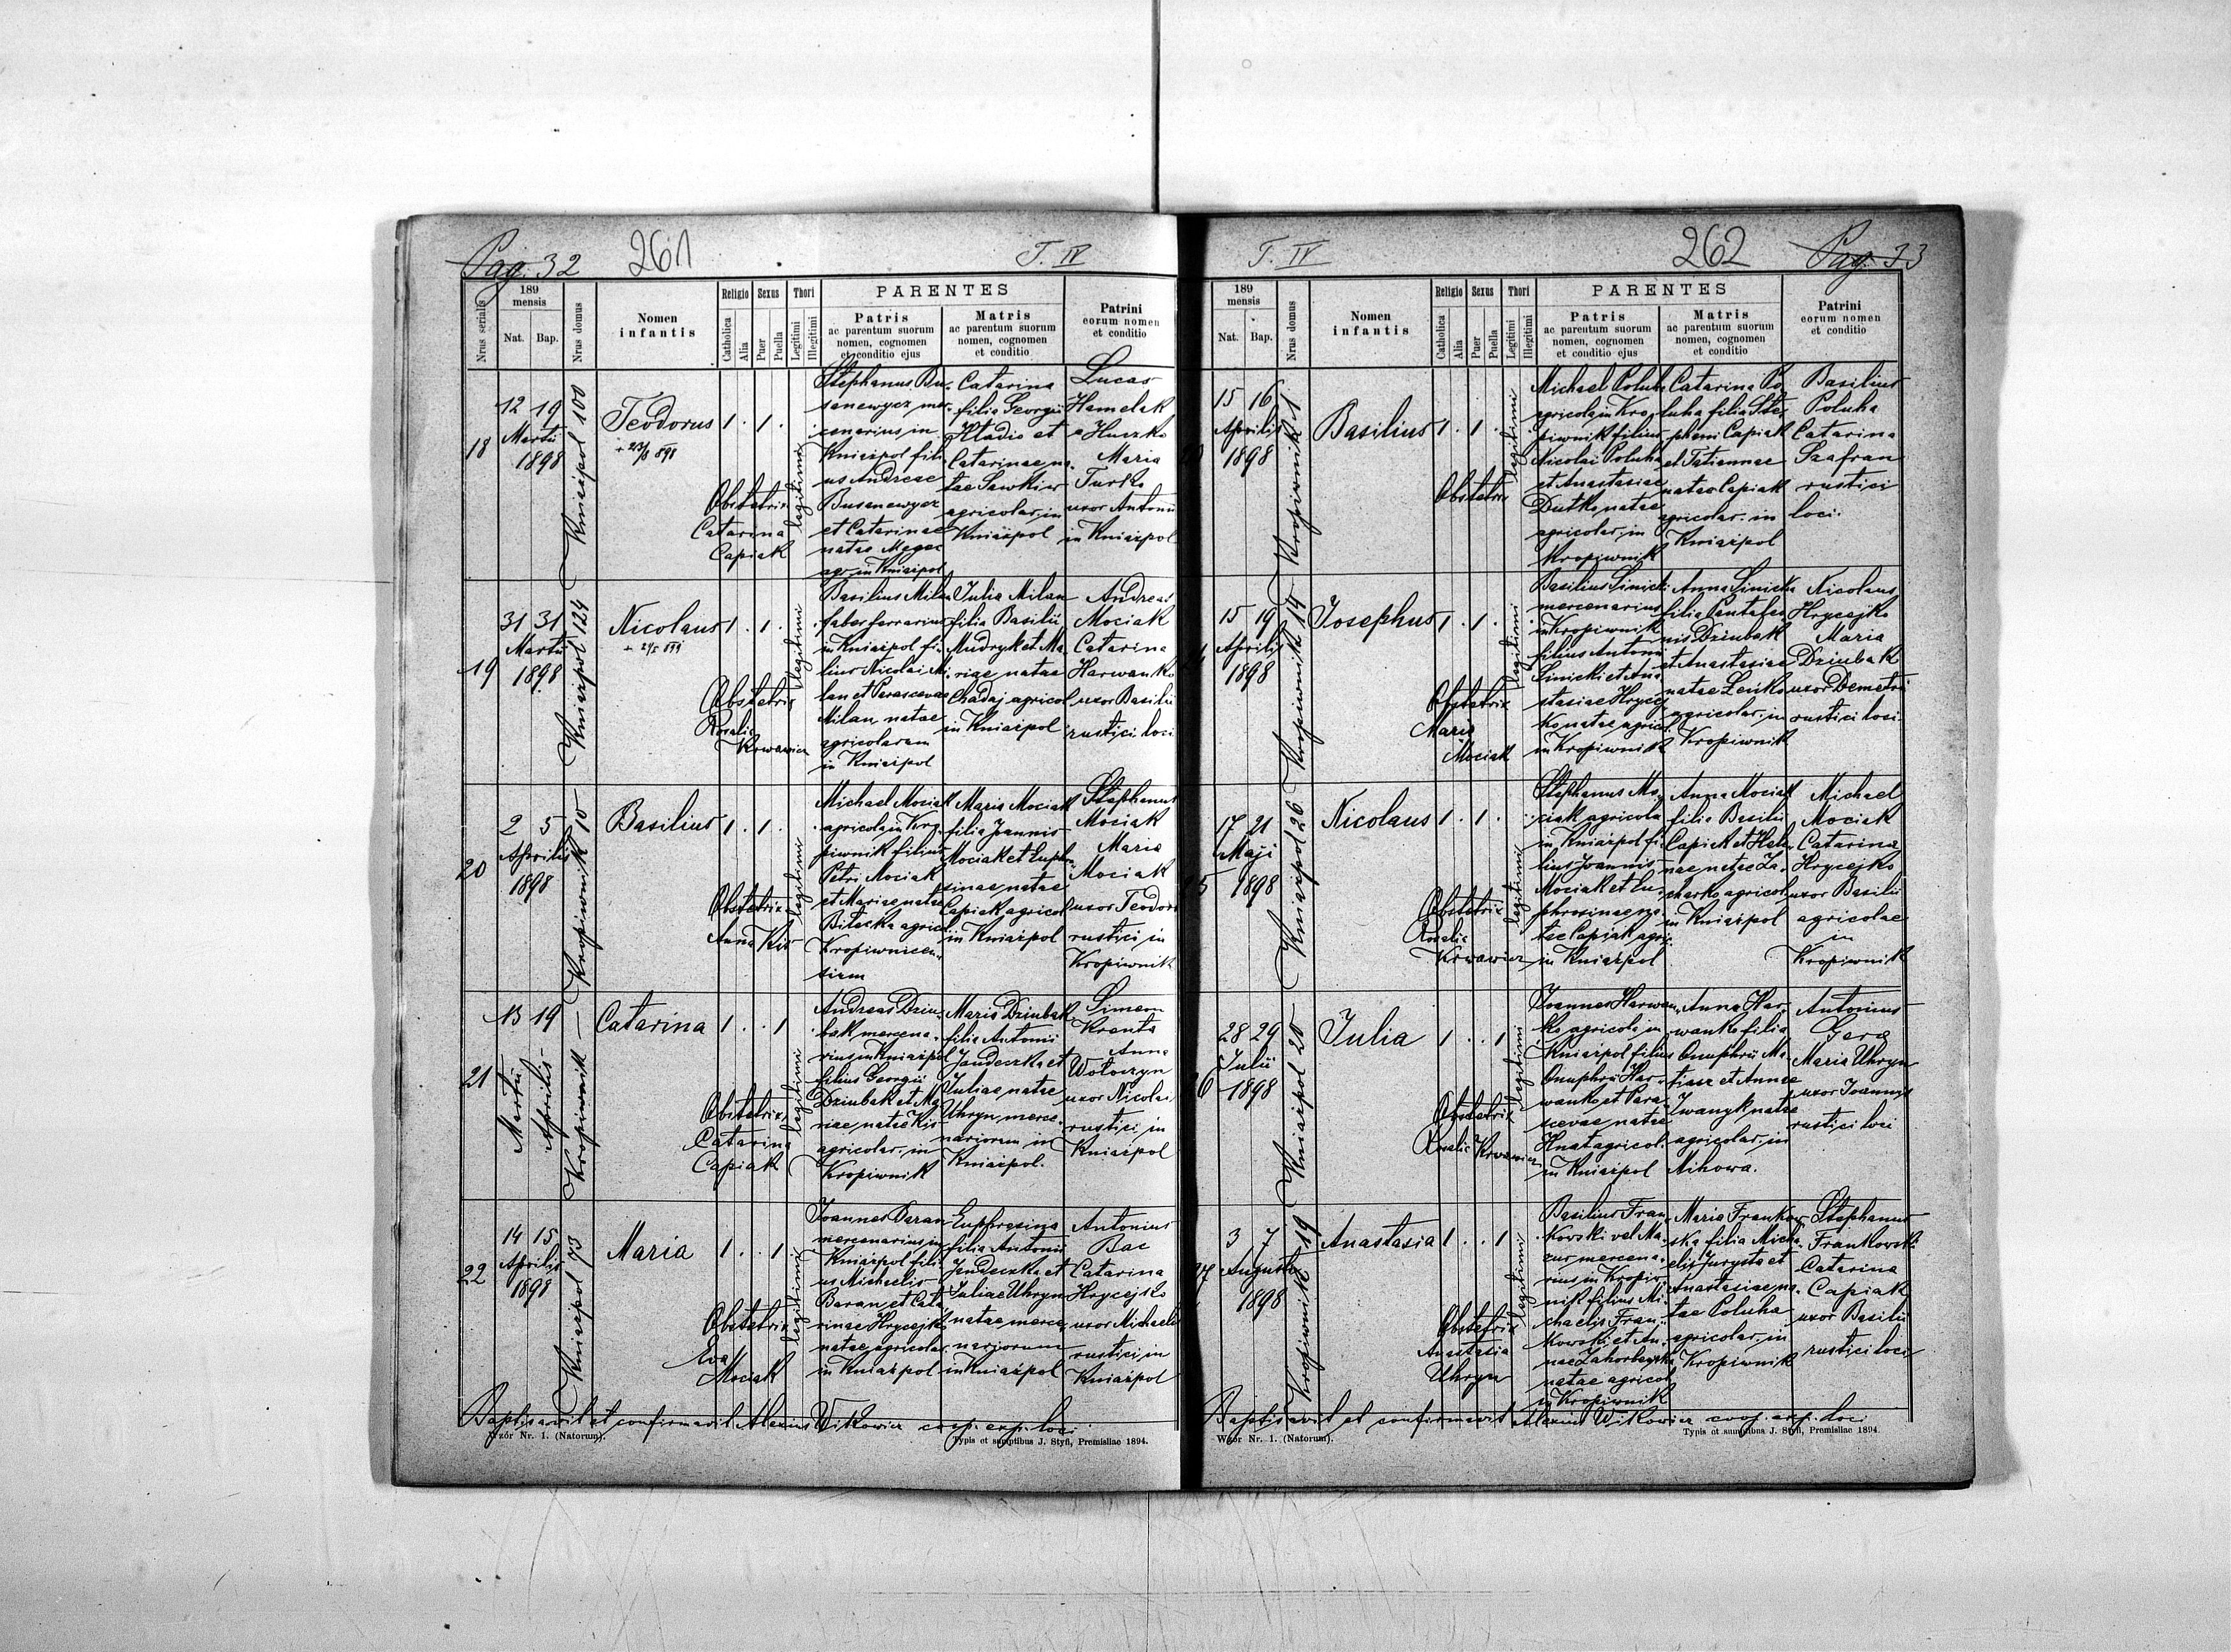 Pag. 32
261
T. IV
Nrus serialis
189
mensis
Nat.
Bap.
Nrus domus
Nomen
infantis
Religio
Sexus
Thori
Catholica
Alia
Puer
Puella
Legitimi
Illegitimi
PARENTES
Patris
ac parentum suorum
nomen, cognomen
et conditio ejus
Matris
ac parentum suorum
nomen, cognomen
et conditio
Patrini
eorum nomen
et conditio
18
12 19
Martii
1898
Kniażpol 100
Teodorus
1 . 1 .
legitimi
Obstetrix
Catarina
Capiak
Stephanus Bu-
sanewycz mer-
cenarius in
Kniażpol fili-
us Andreae
Busanewycz
et Catarinae
natae
agr. in Kniażpol
Catarina
filia Georgii
Hladio et
Catarinae na-
tae Sawkiw
agricolar. in
Kniażpol
Lucas
Hamelak
Maria
Turko
uxor Antonii
in Kniażpol
19
31 31
Martii
1898
Kniażpol 124
Nicolaus
1 . 1 .
legitimi
Obstetrix
Rosalia
Krwawicz
Basilius Milan
faber ferrarius
in Kniażpol fi-
lius Nicolai Mi-
lan et Parascevae
Milan natae
agricolarum
in Kniażpol
Julia Milan
filia Basilii
Mudryk et Ma-
riae natae
Chadaj agricol
in Kniażpol
Andreas
Mociak
Catarina
Harwanko
uxor Basilii
rustici loci
20
2 5
Aprilis
1898
Kropiwnik 10
Basilius
1 . 1 .
legitimi
Obstetrix
Anna Kis
Michael Mociak
agricola in Kro-
piwnik filius
Petri Mociak
et Mariae natae
agricol
Kropiwnicen-
sium
Maria Mociak
filia Joannis
Mociak et Euphro-
sinae natae
Capiak agricol
in Kniażpol
Stephanus
Mociak
Maria
Mociak
uxor Teodori
rustici in
Kropiwnik
21
13 19
Martii
Aprilis
Kropiwnik
Catarina
1 . . 1
legitimi
Obstetrix
Catarina
Capiak
Andreas Dziu-
bak mercena-
rius in Kniażpol
filius Georgii
Dziubak et Ma-
riae natae Kis
agricolar. in
Kropiwnik
Maria Dziubak
filia Antonii
Jendeczka et
Juliae natae
Uhryn merce-
nariorum in
Kniażpol.
Simeon
Kranta
Anna
Wołoczyn
uxor Nicolai
rustici in
Kniażpol
22
14 15
Aprilis
1898
Kniażpol 73
Maria
1 . . 1
legitimi
Obstetrix
Eva
Mociak
Joannes Baran
mercenarius in
Kniażpol fili-
us Michaelis
Baran et Cata-
rinae Hrycejko
natae agricolar.
in Kniażpol
Euphrosina
filia Antonii
Jendeczka et
Juliae Uhryn
natae merce-
nariorum
in Kniażpol
Antonius
Bac
Catarina
Hrycejko
uxor Michaelis
rustici in
Kniażpol
Baptisavit et confirmavit Alexius Witkowicz coop. exp. loci
Wzór Nr. 1. (Natorum).
Typis et sumptibus J. Styfi, Premisliae 1894.
T. IV
262
Pag. 33
189
mensis
Nat.
Bap.
Nrus domus
Nomen
infantis
Religio
Sexus
Thori
Catholica
Alia
Puer
Puella
Legitimi
Illegitimi
PARENTES
Patris
ac parentum suorum
nomen, cognomen
et conditio ejus
Matris
ac parentum suorum
nomen, cognomen
et conditio
Patrini
eorum nomen
et conditio
15 16
Aprilis
1898
Kropiwnik 1
Basilius
1 . 1 .
legitimi
Obstetrix
Michael Poluha
agricola in Kro-
piwnik filius
Nicolai Poluha
et Anastasiae
Dutko natae
agricolar. in
Kropiwnik
Catarina Po-
luha filia Ste-
phani Capiak
et Tatiannae
natae Capiak
agricolar. in
Kniażpol
Basilius
Poluha
Catarina
Szafran
rustici
loci.
15 19
Aprilis
1898
Kropiwnik 14
Josephus
1 . 1 .
legitimi
Obstetrix
Maria
Mociak
Basilius Sinicki
mercenarius
in Kropiwnik
filius Antonii
Sinicki et Ana-
stasiae Hrycej-
ko natae agricol.
in Kropiwnik
Anna Sinicka
filia Pantaleo-
nis Dziubak
et Anastasiae
natae Leńko
agricolar. in
Kropiwnik
Nicolaus
Hrycejko
Maria
Dziubak
uxor Demetrii
rustici loci
17 21
Maji
1898
Kniażpol 26
Nicolaus
1 . 1 .
legitimi
Obstetrix
Rosalia
Krwawicz
Stephanus Mo-
ciak agricola
in Kniażpol fi-
lius Joannis
Mociak et Eu-
phrosinae na-
tae Capiak agric.
in Kniażpol
Anna Mociak
filia Basilii
Capiak et Hele-
nae natae Za-
charko agricol
in Kniażpol
Michael
Mociak
Catarina
Hrycejko
uxor Basilii
agricolae
in
Kropiwnik
28 29
Julii
1898
Kniażpol 20
Julia
1 . . 1
legitimi
Obstetrix
Rosalia Krwawicz
Joannes Harwan-
ko agricola in
Kniażpol filius
Onuphrii Har-
wanko et Para-
scevae natae
Hnat agricol.
in Kniażpol
Anna Har-
wanko filia
Onuphrii Ma-
tiasz et Annae
Iwanyk natae
agricolar. in
Mihowa.
Antonius
Gera
Maria Uhryn
uxor Joannis
rustici loci
3 7
Augusti
1898
Kropiwnik 19
Anastasia
1 . . 1
legitimi
Obstetrix
Anastasia
Uhryn
Basilius Fran-
kowski vel Ma-
zur mercena-
rius in Kropiw-
nik filius Mi-
chaelis Fran-
kowski et An-
nae
natae agricol
in Kropiwnik
Maria Frankow-
ska filia Micha-
elis Jurysta et
Anastasiae na-
tae Poluha
agricolar. in
Kropiwnik
Stephanus
Frankowski
Catarina
Capiak
uxor Basilii
rustici loci
Baptisavit et confirmavit Alexius Witkowicz coop. exp. loci
Wzór Nr. 1. (Natorum).
Typis et sumptibus J. Styfi, Premisliae 1894.